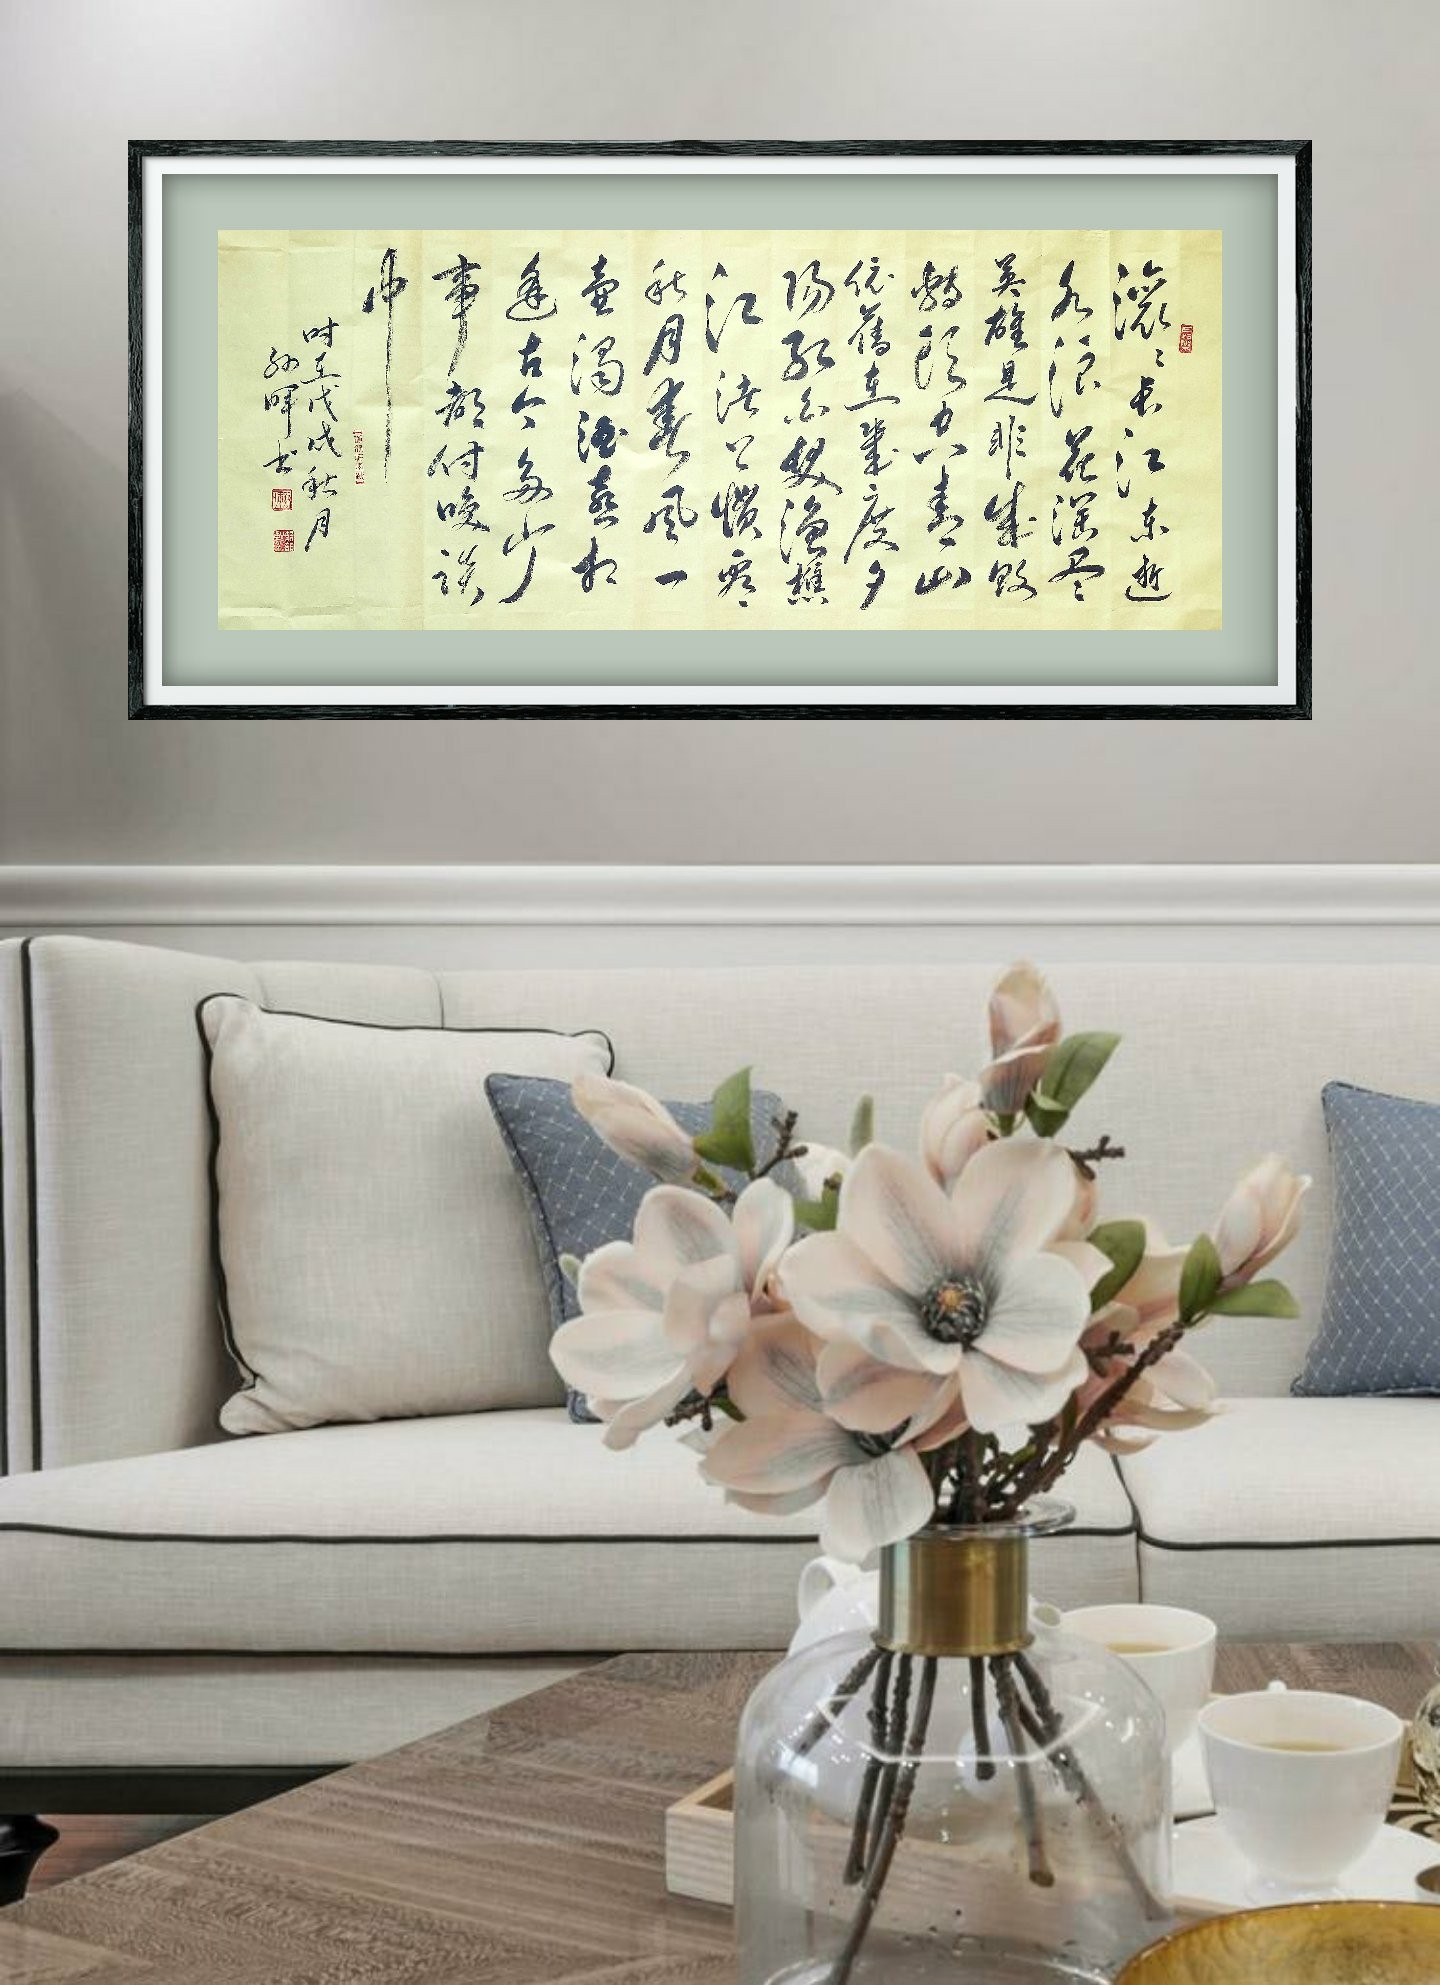 滚〻长江东逝
水浪花淘尽
英雄是非成败
轉頭空青山
依舊在幾度夕
陽红白发渔樵
江渚上惯看
秋月春风一
壶濁酒喜相
逢古今多少
事都付笑谈
中
时在戊戌秋月
孙暉书